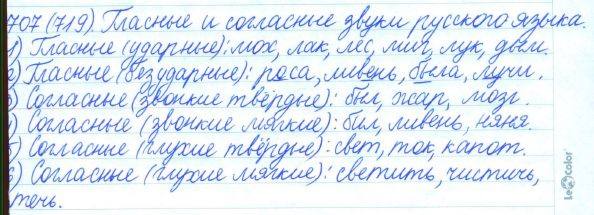 707 (719). Гласные и согласные звуки русского языка.
1) Гласные (ударные): мох, лак, лес, мил, лук, дым.
2) Гласные (безударные): роса, ливень, была, лучи.
3) Согласные (звонкие твёрдые): был, жар, мозг.
4) Согласные (звонкие мягкие): бил, ливень, няня.
5) Согласные (глухие твёрдые): свет, ток, капот.
6) Согласные (глухие мягкие): светить, чистить,
течь.
LeColor